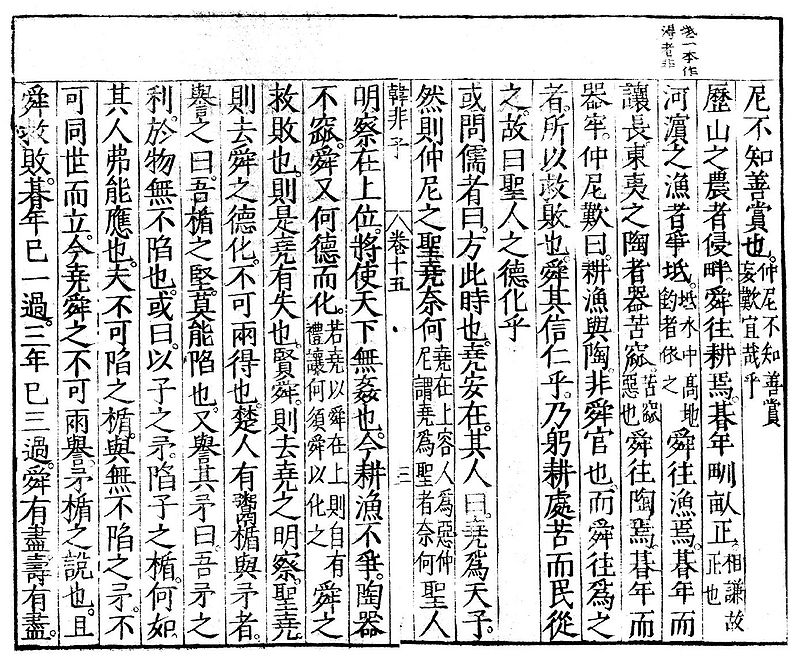 一本作
者非
尼不知善賞也。仲尼不知善賞妄歎宜哉乎
歷山之農者侵畔舜往耕焉。朞年甽畝正。相謙故正也
河濵之漁者爭坻。坻水中髙地釣者依之舜往漁焉。朞年而
讓長。東夷之陶者器苦窳。苦窳惡也舜往陶焉。朞年而
器牢。仲尼歎曰。耕漁與陶。非舜官也。而舜往爲之
者。所以救敗也。舜其信仁乎。乃躬耕處苦而民從
之。故曰聖人之德化乎
或問儒者曰。方此時也。堯安在。其人曰。堯爲天子。
然則仲尼之聖堯奈何堯在上容人爲惡仲尼謂堯爲聖者奈何聖人
韓非子 卷十五 三
明察在上位。將使天下無姦也。今耕漁不爭。陶器
不窳。舜又何德而化。若堯以舜在上則自有禮讓何須舜以化之舜之
救敗也。則是堯有失也。賢舜。則去堯之明察。聖堯。
則去舜之德化。不可兩得也。楚人有鬻楯與矛者。
譽之曰。吾楯之堅。莫能陷也。又譽其矛曰。吾矛之
利。於物無不陷也。或曰。以子之矛。陷子之楯。何如
其人弗能應也。夫不可陷之楯。與無不陷之矛。不
可同世而立。今堯舜之不可兩譽。矛楯之說也。且
舜救敗。朞年已一過。三年已三過。舜有盡。壽有盡。